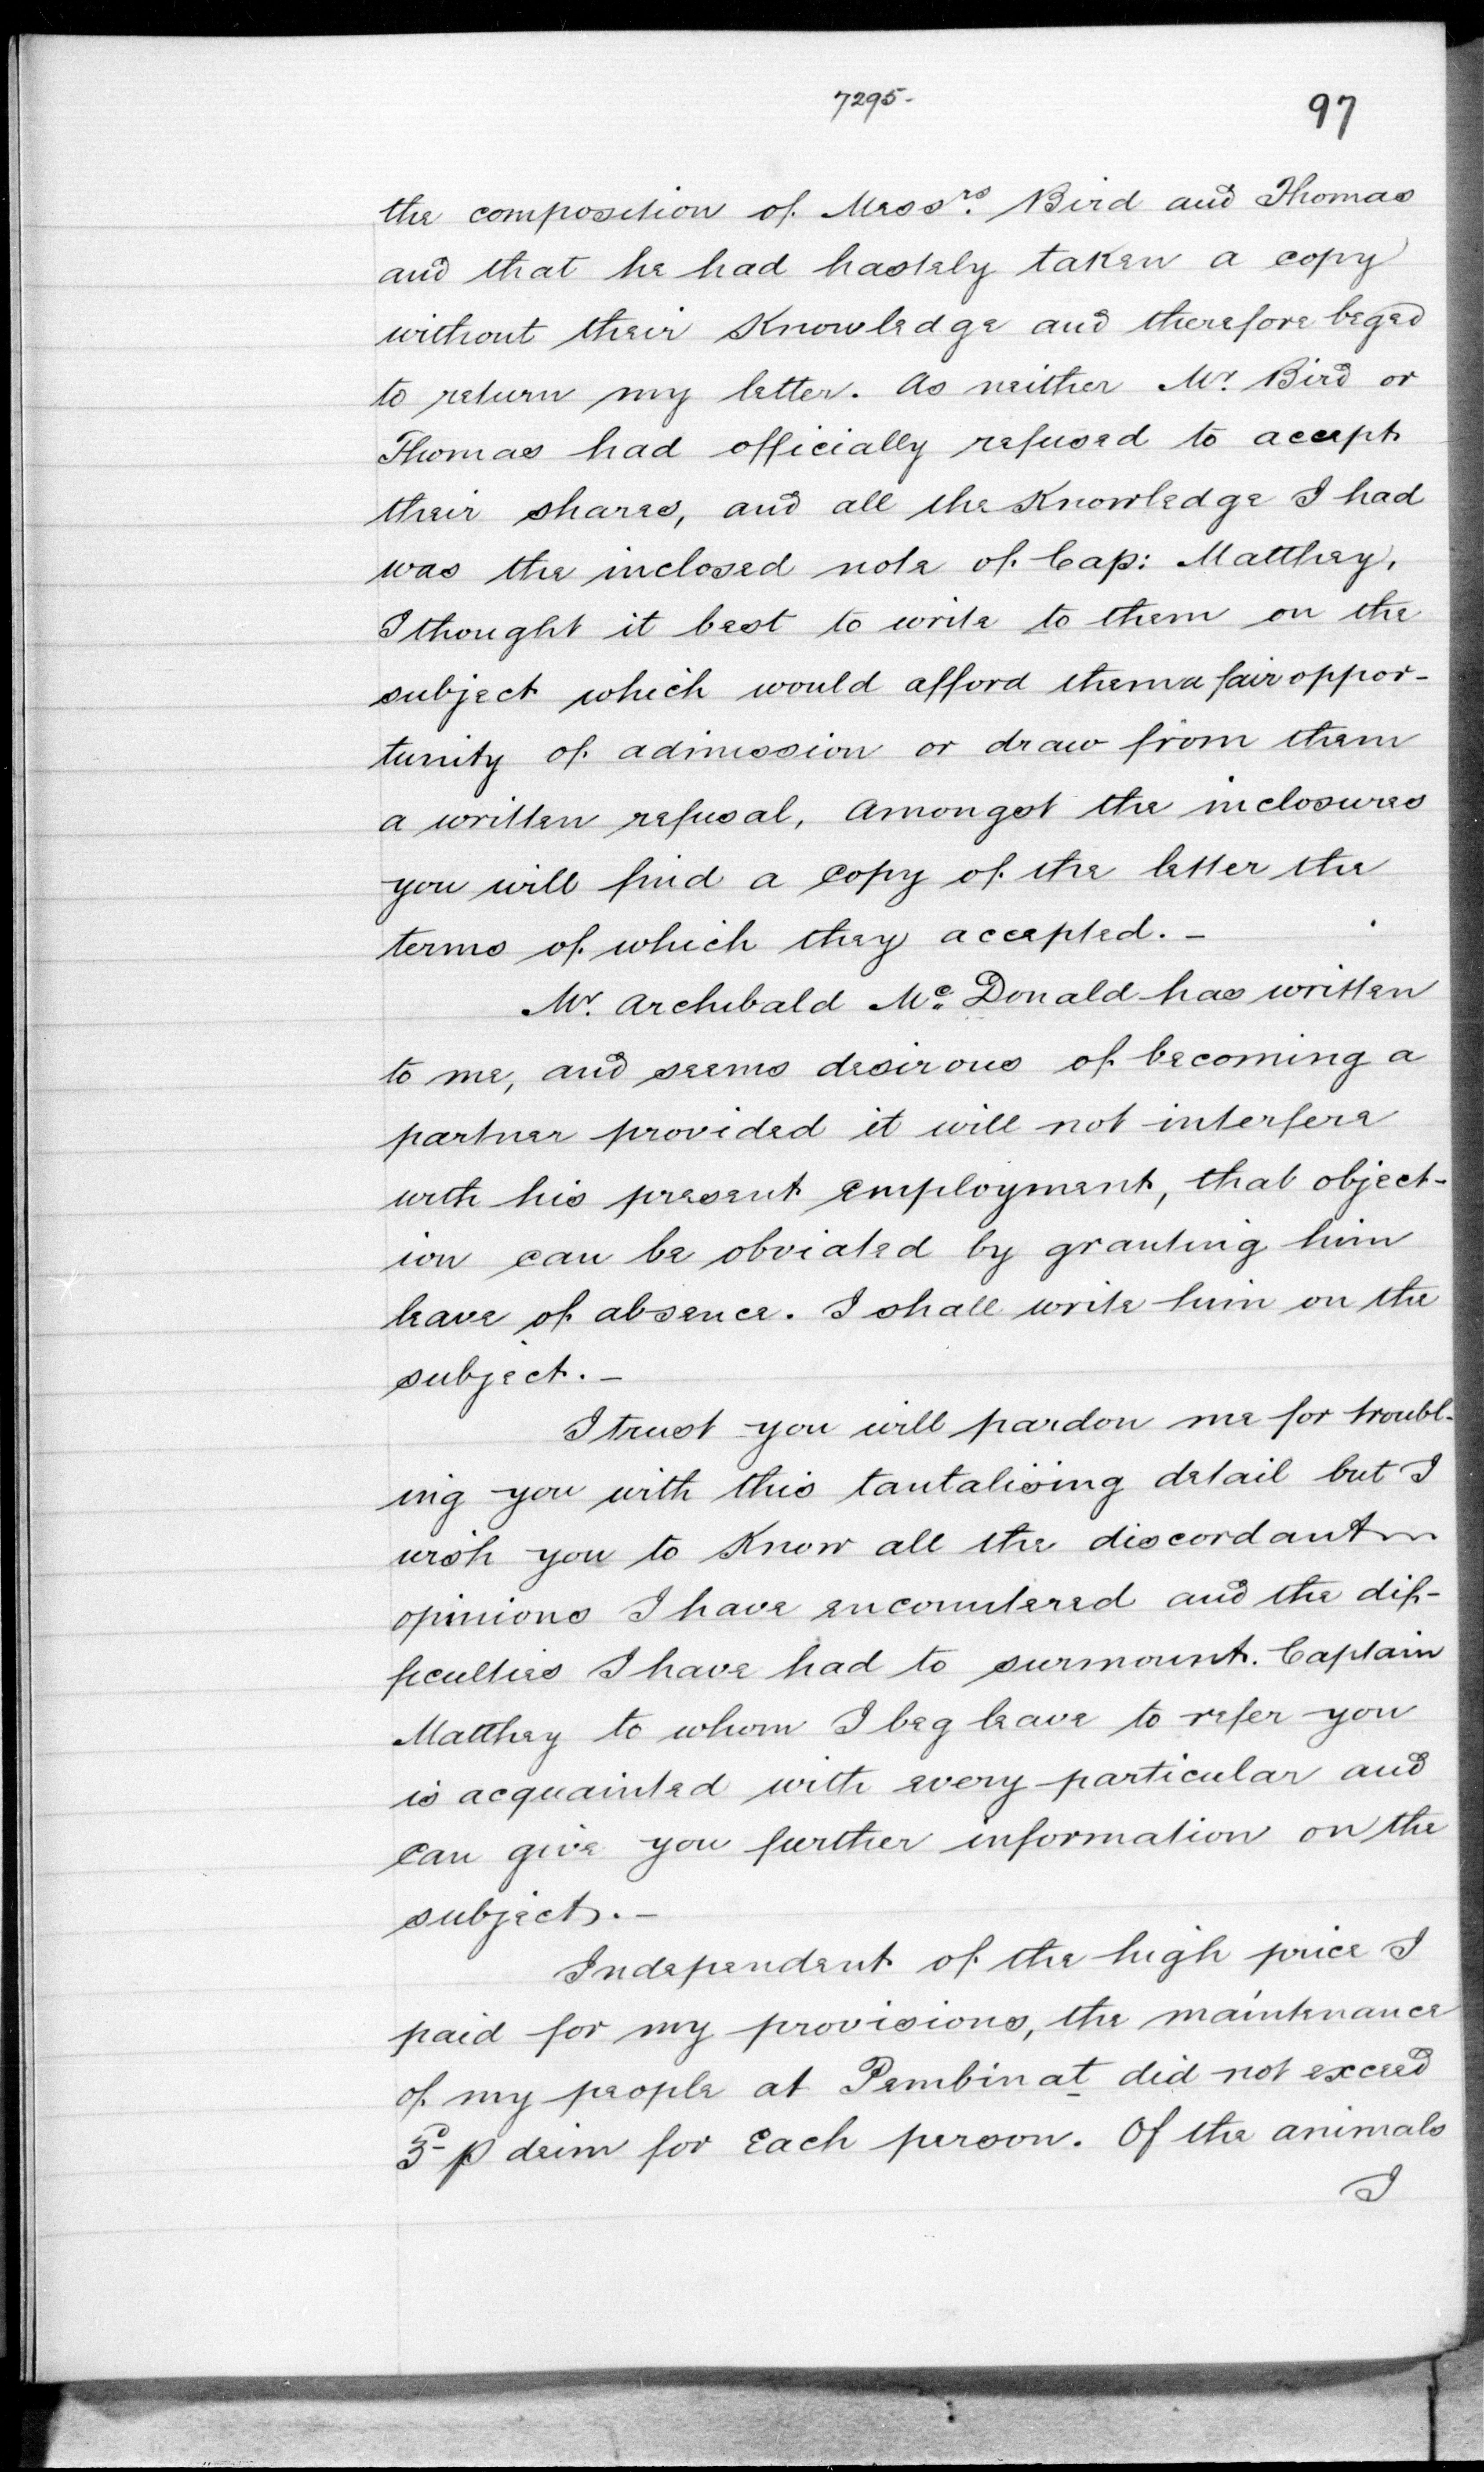 7295-
97
the composition of Messrs. Bird and Thomas
and that he had hastely taken a copy
without their Knowledge and therefore beged
to return my letter. As neither Mr. Bird or
Thomas had officially refused to accept
their shares, and all the Knowledge I had
was the inclosed note of Cap: Matthey,
I thought it best to write to them on the
subject which would afford them a fair oppor-
tunity of admission or draw from them
a written refusal, Amongst the inclosures
you will find a Copy of the letter the
terms of which they accepted. -
Mr. Archibald Mc. Donald has written
to me, and seems desirous of becoming a
partner provided it will not interfere
with his present employment, that object-
ion can be obviated by granting him
leave of absence. I shall write him on the
subject. -
I trust you will pardon me for troubl-
ing you with this tantalising detail but I
wish you to Know all the discordant
opinions I have encountered and the dif-
ficulties I have had to surmount. Captain
Matthey to whom I beg leave to refer you
is acquainted with every particular and
can give you further information on the
subject. -
Independent of the high price I
paid for my provisions, the maintenance
of my people at Pembinat did not exceed
3d p deim for Each person. Of the animals
I